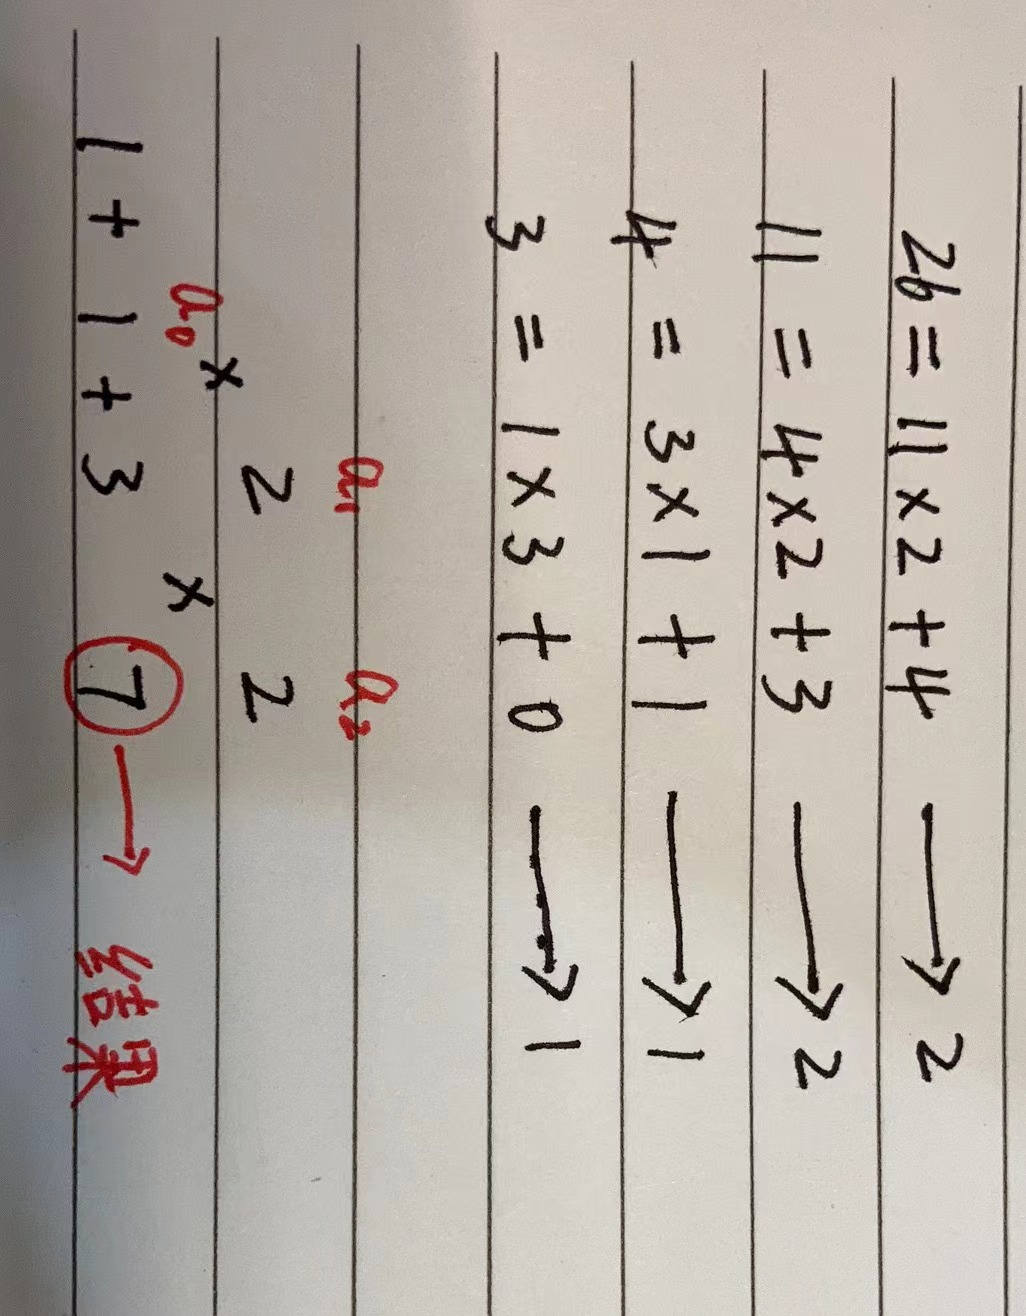 26 = 11 × 2 + 4 → 2
11 = 4 × 2 + 3 → 2
4 = 3 × 1 + 1 → 1
3 = 1 × 3 + 0 → 1
a₁ a₂
2 2
a₀ × ×
1 + 1 + 3 7 → 结果